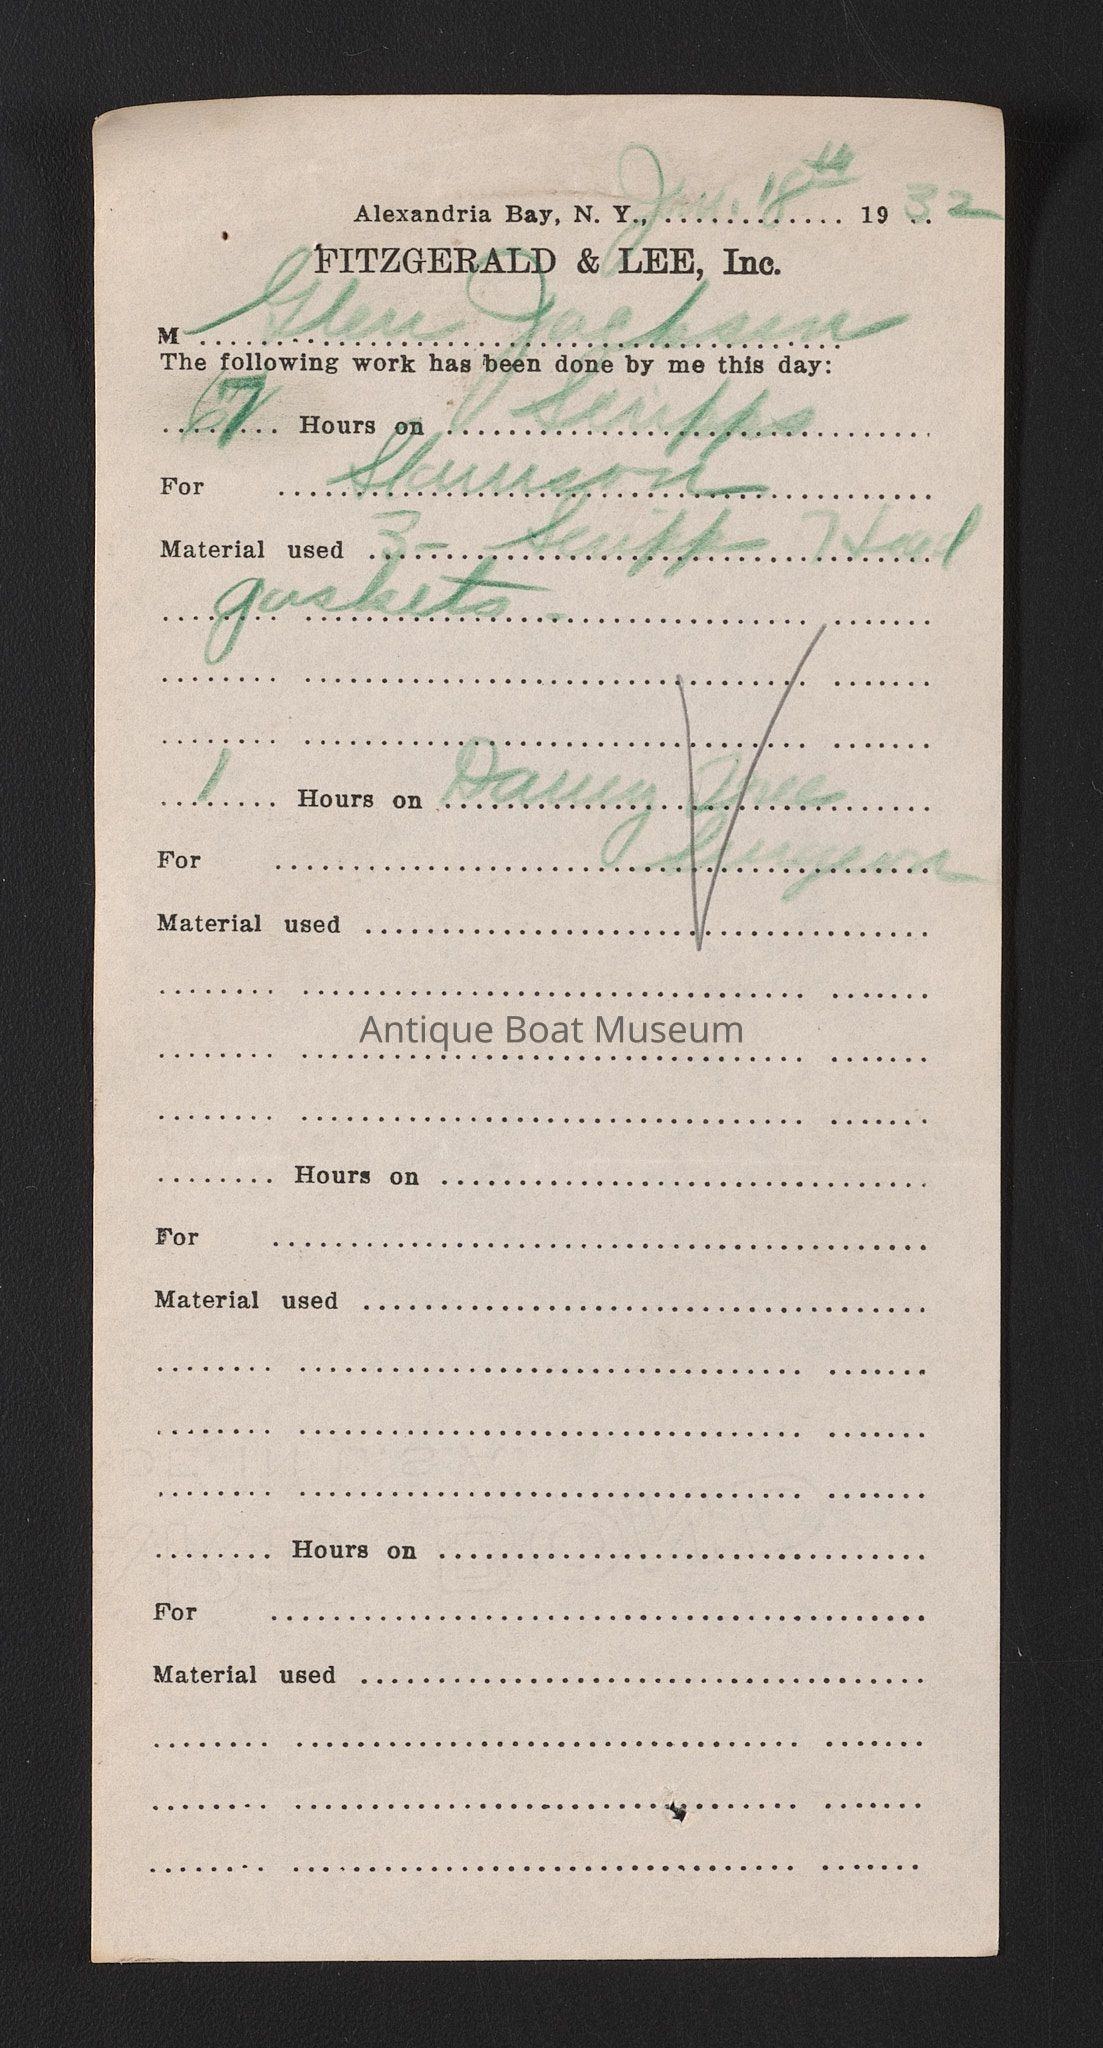 Alexandria Bay, N. Y., Jan. 18th 1932
FITZGERALD & LEE, Inc.
M Glen Jackson
The following work has been done by me this day:
7 Hours on Scripps
For
Material used 3 - Scripp Head
gaskets.
1 Hours on
For
Material used
Antique Boat Museum
Hours on
For
Material used
Hours on
For
Material used